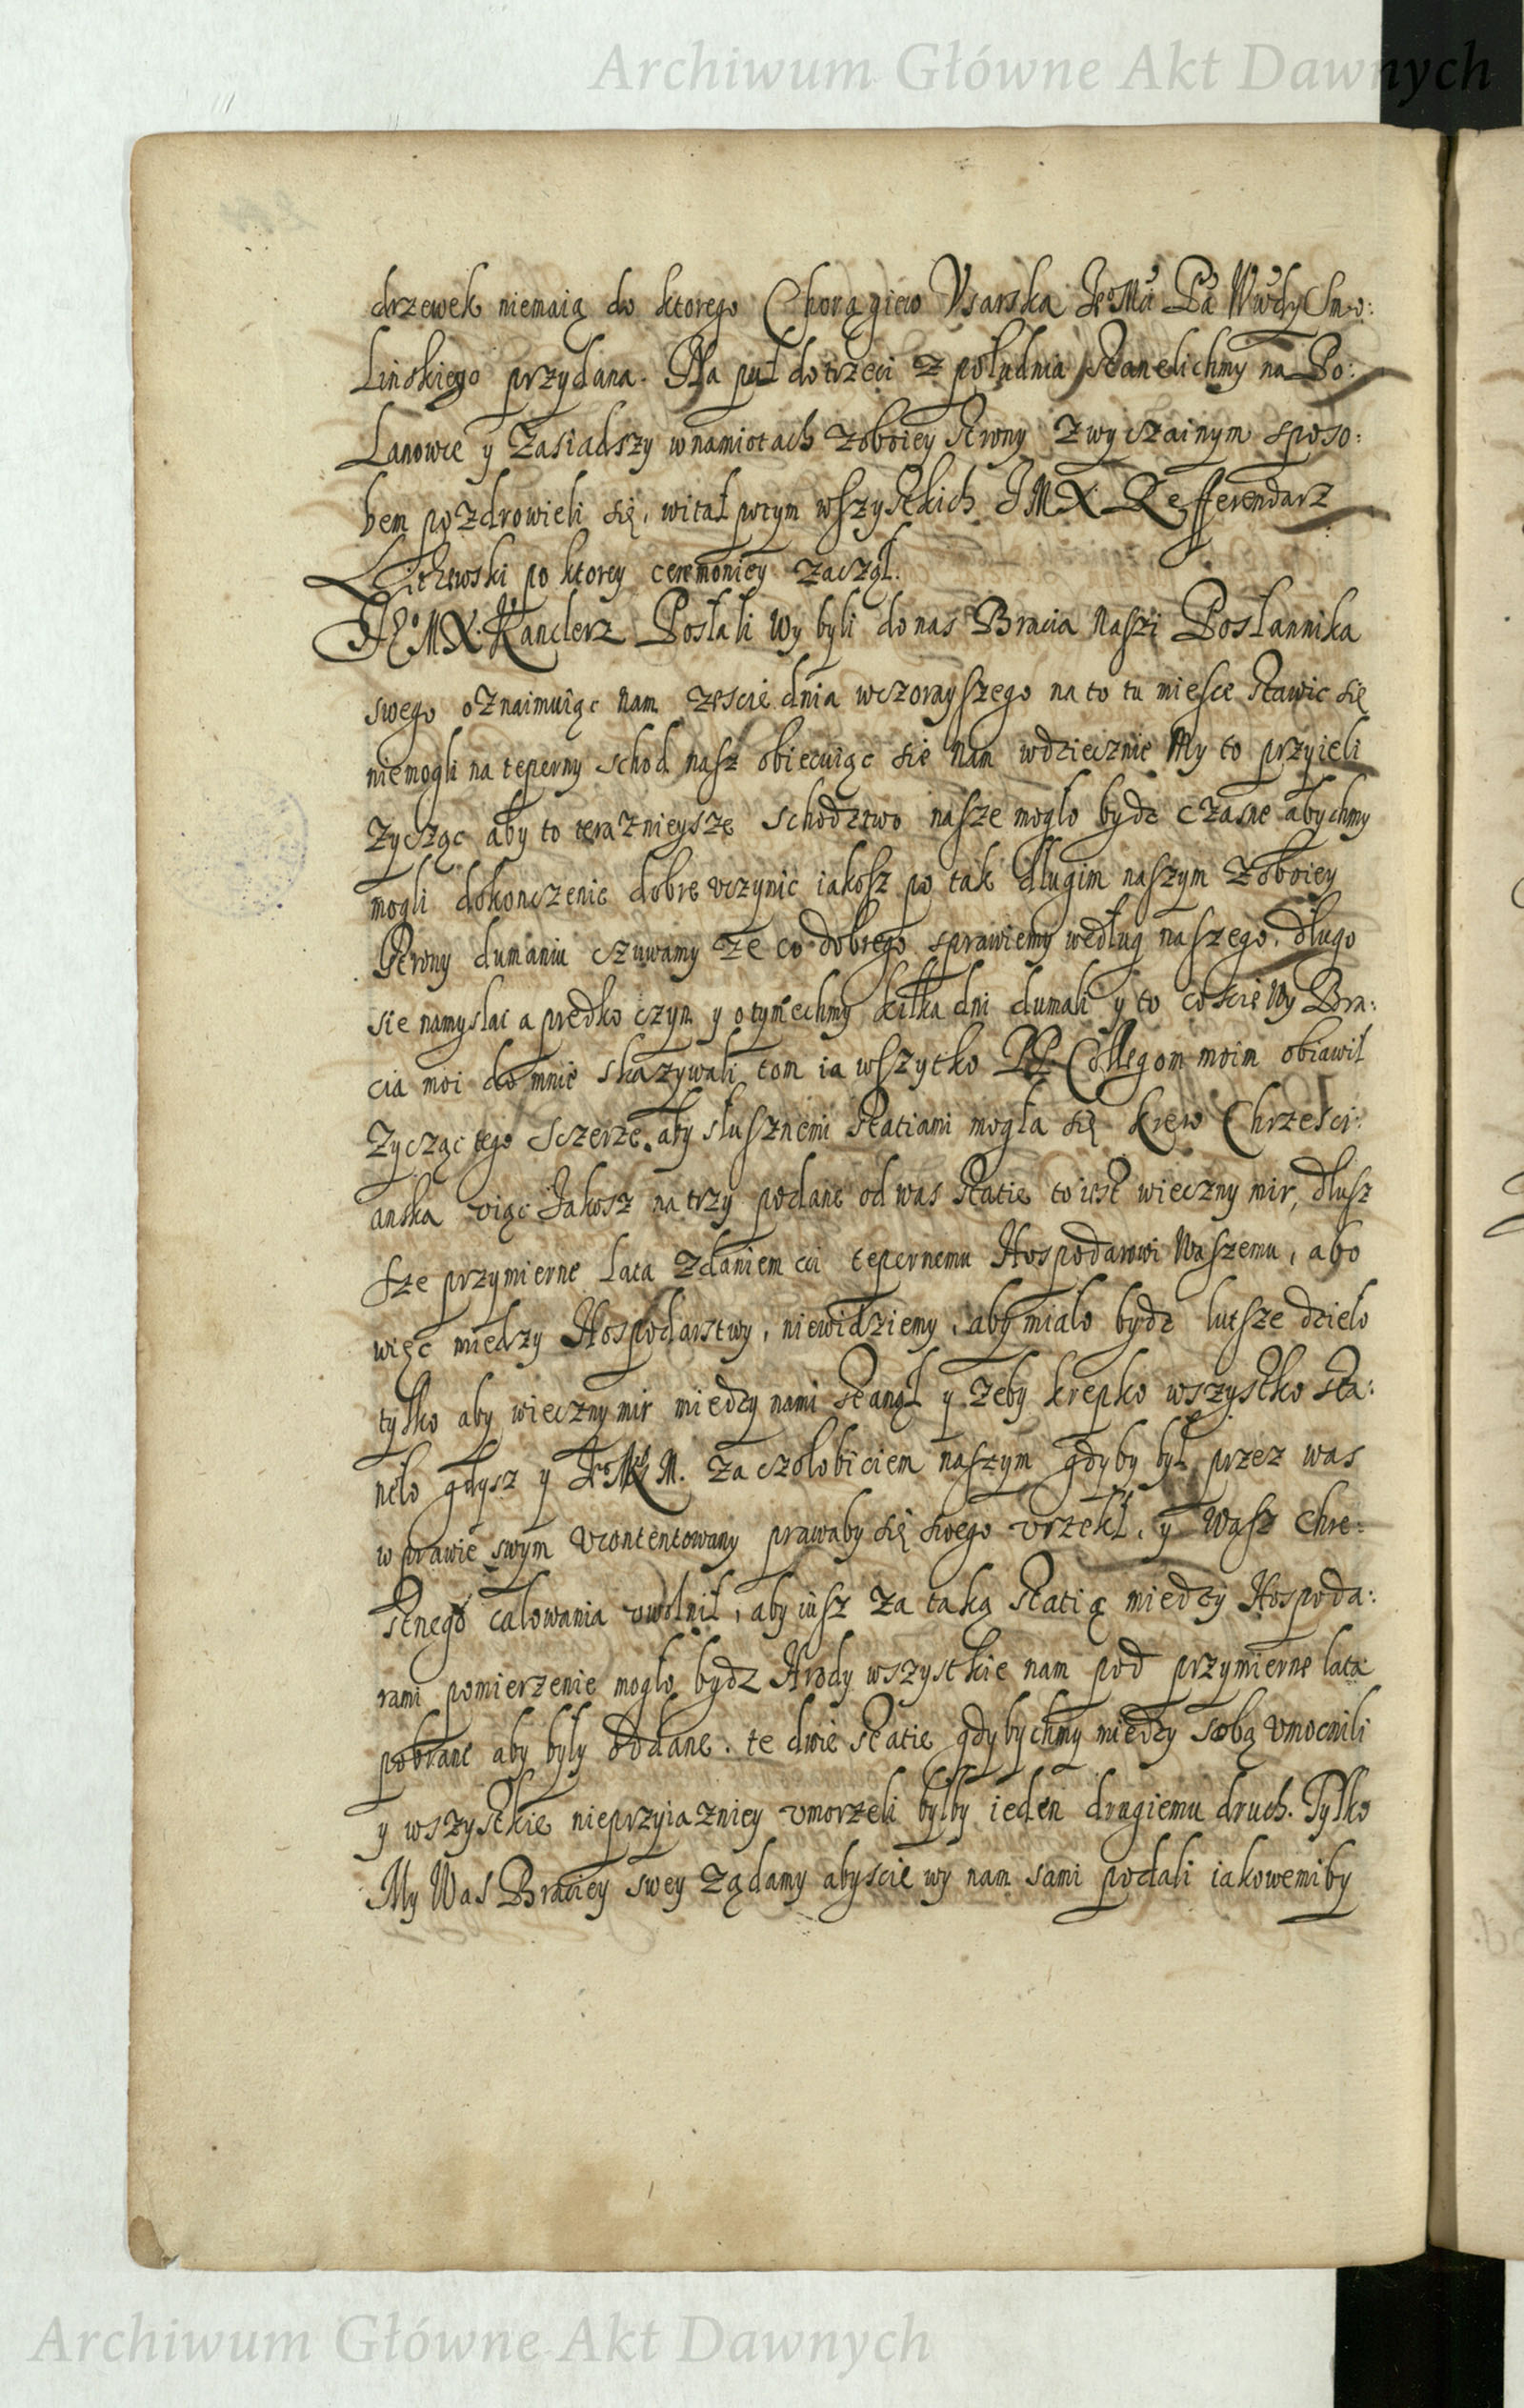 Archiwum Główne Akt Dawnych
drzewek niemaią do ktorego Chorągiew Vsarska Je° Mci Pa Wwdy Smo:
Linskiego przydana. Na puł do trzeci z południa stanelichmy na Po:
Lanowce y Zasiadszy w namiotach z oboiey strony zwyczainym sposo:
bem pozdrowieli się, witał potym wszystkich JMX Refferendarz
po ktorey ceremoniey zaczął.
Je° MX. Kanclerz Posłali Wy byli do nas Bracia Naszi Posłannika
swego oznaimuiąc nam zescie dnia wczorayszego na to tu miesce stawic się
niemogli na teperny schod nasz obiecuiąc sie nam wdziecznie My to przyieli
Zycząc aby to teraznieysze schodztwo nasze mogło bydz czasne abychmy
mogli dokonczenie dobre vczynic iakosz po tak długim naszym z oboiey
strony dumaniu czuwamy ze co dobrego sprawiemy według naszego. długo
sie namyslai a prędko czyn y o tymechmy kilka dni dumali y to coscie Wy Bra:
cia moi do mnie skazywali tom ia wszytko PP. Collegom moim obiawił
Zycząc tego sczerze. aby słusznemi statiami mogła się krew Chrzesci:
anska viąc Jakosz na trzy podane od was statie to iest wieczny mir, dłusz
sze przymierne Lata zdaniem ci tepernemu Hospodarowi Waszemu, abo
więc miedzy Hospodarstwy, niewidziemy, aby miało bydz lutsze dzieło
tylko aby wieczny mir miedzy nami stanął y zeby krepko wszystko sta:
neło gdysz y Je° K M. Za czołobiciem naszym gdyby był przez was
w prawie swym vcontentowany prawaby się swego vrzekł, y Wasz chre:
stnego całowania vwolnił, aby iusz za taką statią miedzy Hospoda:
rami pomierzenie mogło bydz Hrody wszystkie nam pod przymierne lata
pobrane aby były oddane. te dwie statie gdybychmy miedzy sobą vmocnili
y wszystkie nieprzyiazniey vmorzeli byłby ieden drugiemu druch. Tylko
My Was Braciey swey Ządamy abyscie wy nam sami podali iakowemiby
Archiwum Główne Akt Dawnych